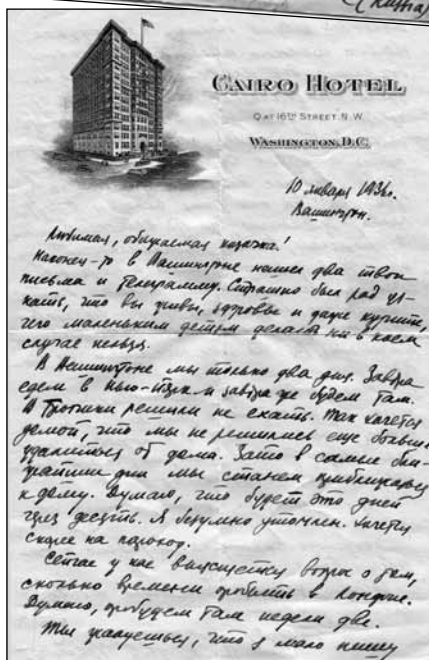 (Russia)
CAIRO HOTEL
Q AT 16TH STREET. N.W.
WASHINGTON, D.C.
10 января 1936.
Вашингтон.
Любимая, обожаемая
Наконец-то в Вашингтоне нашел два твоих
письма и телеграмму. Страшно был рад уз-
нать, что вы живы, здоровы и даже курите,
чего маленьким детям делать ни в коем
случае нельзя.
В Вашингтоне мы только два дня. Завтра
едем в Нью-Йорк и завтра же будем там.
В Тропики решили не ехать. Так хочется
домой, что мы не решились еще больше
удаляться от дома. Зато в самые бли-
жайшие дни мы станем приближаться
к дому. Думаю, что будет это дней
через десять. Я безумно утомлен. Хочется
скорее на пароход.
Сейчас у нас вопрос о том,
сколько времени пробыть в Лондоне.
Думаю, пробудем там недели две.
Ты жалуешься, что я мало пишу